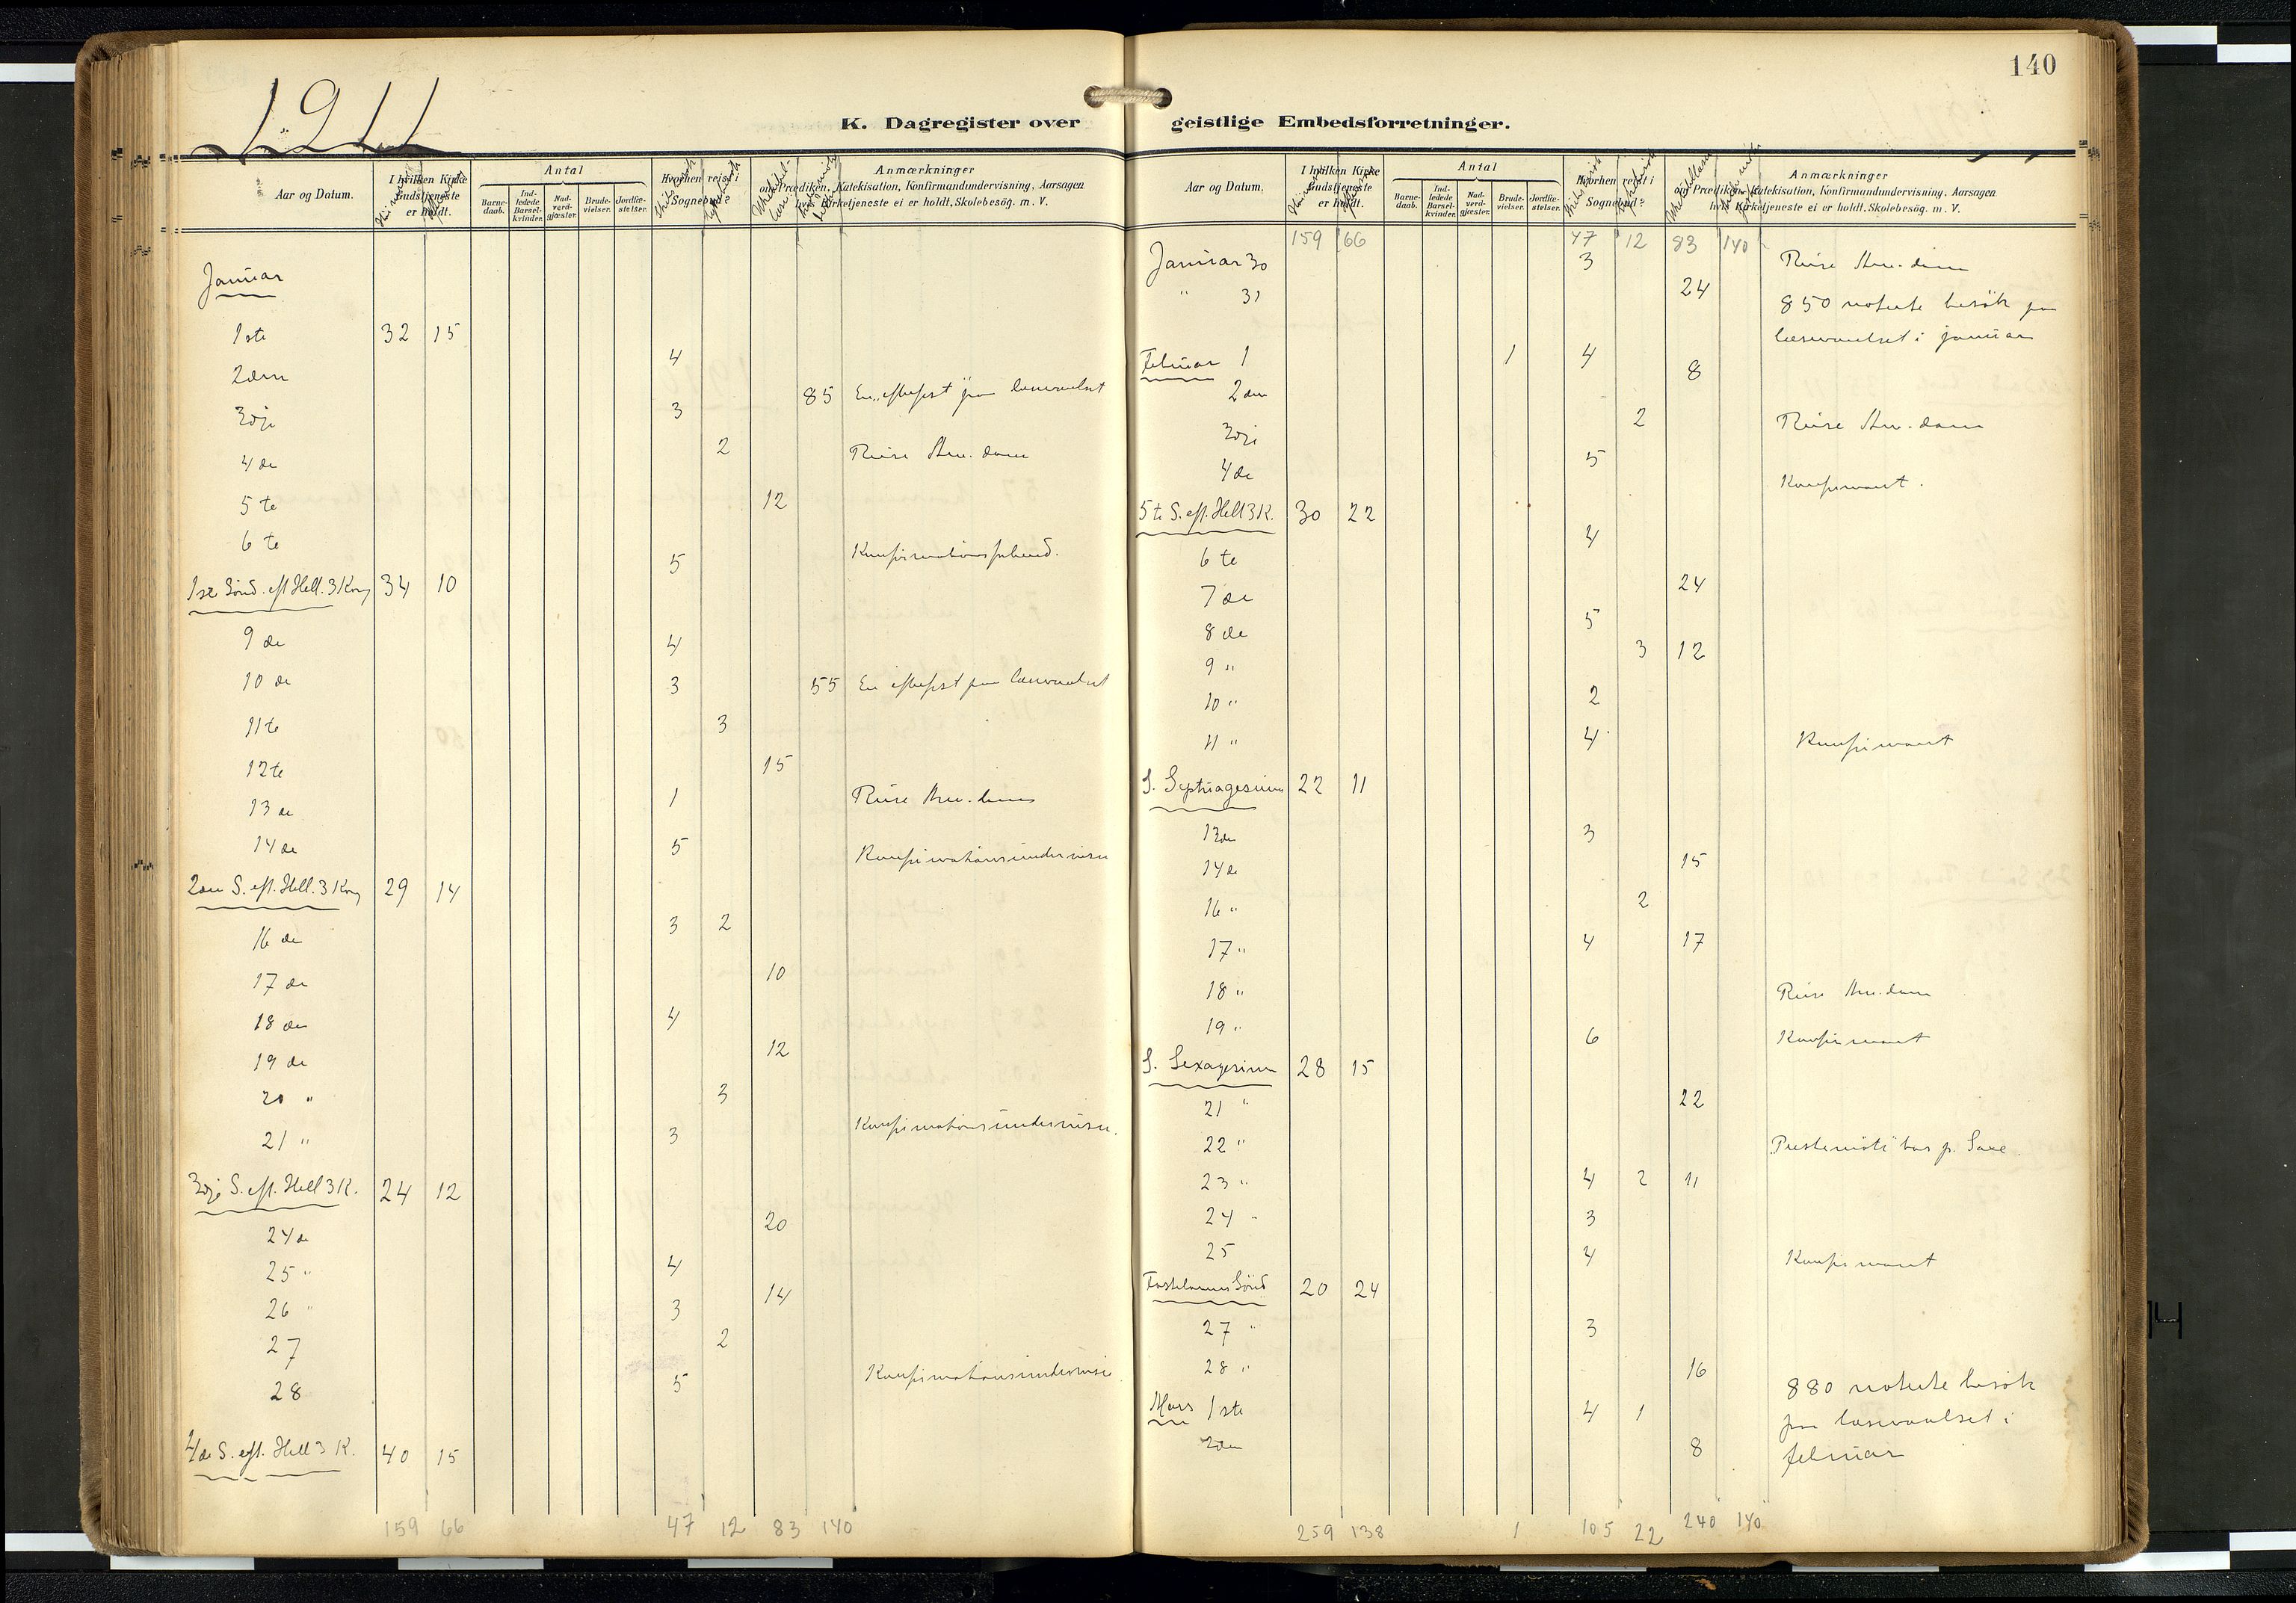 1911
140
K. Dagregister over geistlige Embedsforretninger.
Aar og Datum.
I hvilken Kirke Gudstjeneste er holdt.
Antal
Barne-daab.
Ind-ledede Barsel-kvinder.
Nad-verd-gjæster.
Brude-vielser.
Jordfæ-stelser.
Hvorhen reist i Sognebud?
Anmærkninger
om Prædiken, Katekisation, Konfirmandundervisning, Aarsagen
hvi Kirketjeneste ei er holdt, Skolebesög. m. V.
Januar
1ste 32 15
4
2den
85 En "efterfest" paa læseværelset
3dje 3
2 Reise Am.dam
4de
5te 12
6te
5
1ste Sönd. eft Hell. 3 Kong 34 10
9de 4
10de 3 55 En efterfest paa læseværelset
11te 3
12te 15
13de 1 Reise Am.dam
14de 5 Konfirmationsundervisn
2den S. eft. Hell. 3 Kong 29 14
16de 3 2
17de 10
18de 4
19de 12
20 " 3
21 " 3 Konfirmationsundervisn.
3dje S. eft. Hell 3 K. 24 12
24de 20
25 " 4
26 " 3 14
27 2
28 5 Konfirmationsundervisn
4de S. eft. Hell 3 K. 40 15
159 66 47 12 83 140
Aar og Datum.
I hvilken Kirke Gudstjeneste er holdt.
Antal
Barne-daab.
Ind-ledede Barsel-kvinder.
Nad-verd-gjæster.
Brude-vielser.
Jordfæ-stelser.
Hvorhen rest i Sognebud?
Anmærkninger
om Prædiken, Katekisation, Konfirmandundervisning, Aarsagen
hvi Kirketjeneste ei er holdt, Skolebesög. m. V.
159 66 47 12 83 140
Januar 30 3 Reise Am.dam
" 31 24 850 noterte besök paa
læseværelset i januar
Februar 1 1 4
8
2den
2 Reise Am.dam
3dje
5
4de Konfirmant.
5te S. eft. Hell 3 K. 30 22
4
6te
24
7de
5
8de
3 12
9 "
2
10 "
11 " 4 Konfirmant
S. Septuagesima 22 11
13de 3
14de 15
16 " 2
17 " 4 17
18 " Reise Am.dam
19 " 6 Konfirmant
S. Sexagesima 28 15
21 " 22
22 " Prestemöte
23 " 4 2 11
24 " 3
25 4 Konfirmant
Fastelavns Sönd 20 24
27 " 3
28 " 16
880 noterte besök
Mars 1ste 4 1 paa læseværelset i
2den 8 februar
259 138 1 105 22 240 140